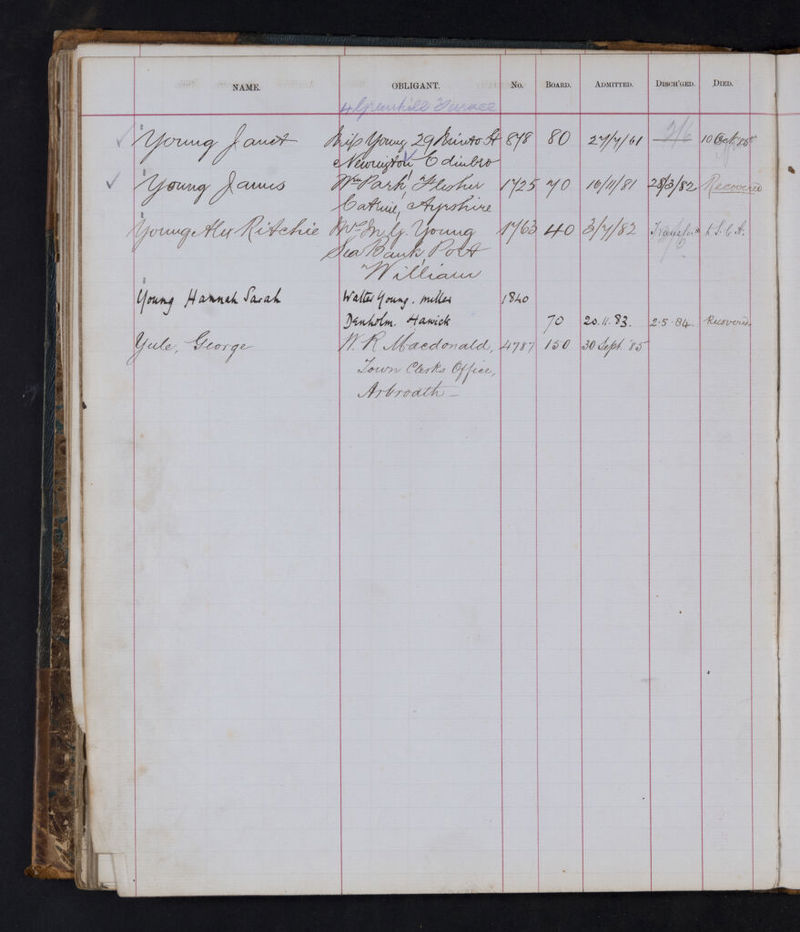 NAME. OBLIGANT. No. BOARD. ADMITTED. DISCH'GED. DIED.
4 Greenhill Terrace
Young Janet Miss Young 29 Minto St 878 80 27/7/61 2/6 10 Oct
Newington Edinbro
Young James Wm Park, Flesher 1725 70 10/11/81 28/3/82 Recovered
Catrine, Ayrshire
Young Alex Ritchie Mrs Young 1763 40 3/7/82
Sea Bank Port
William
Young Hannah Sarah Walter Young. miller 1840
Denholm. Hawick 70 20.11.83. 2.5.84. Recovered
Yule, George W. R. Macdonald, 4787 150 30 Sept. 85
Town Clerks Office,
Arbroath —